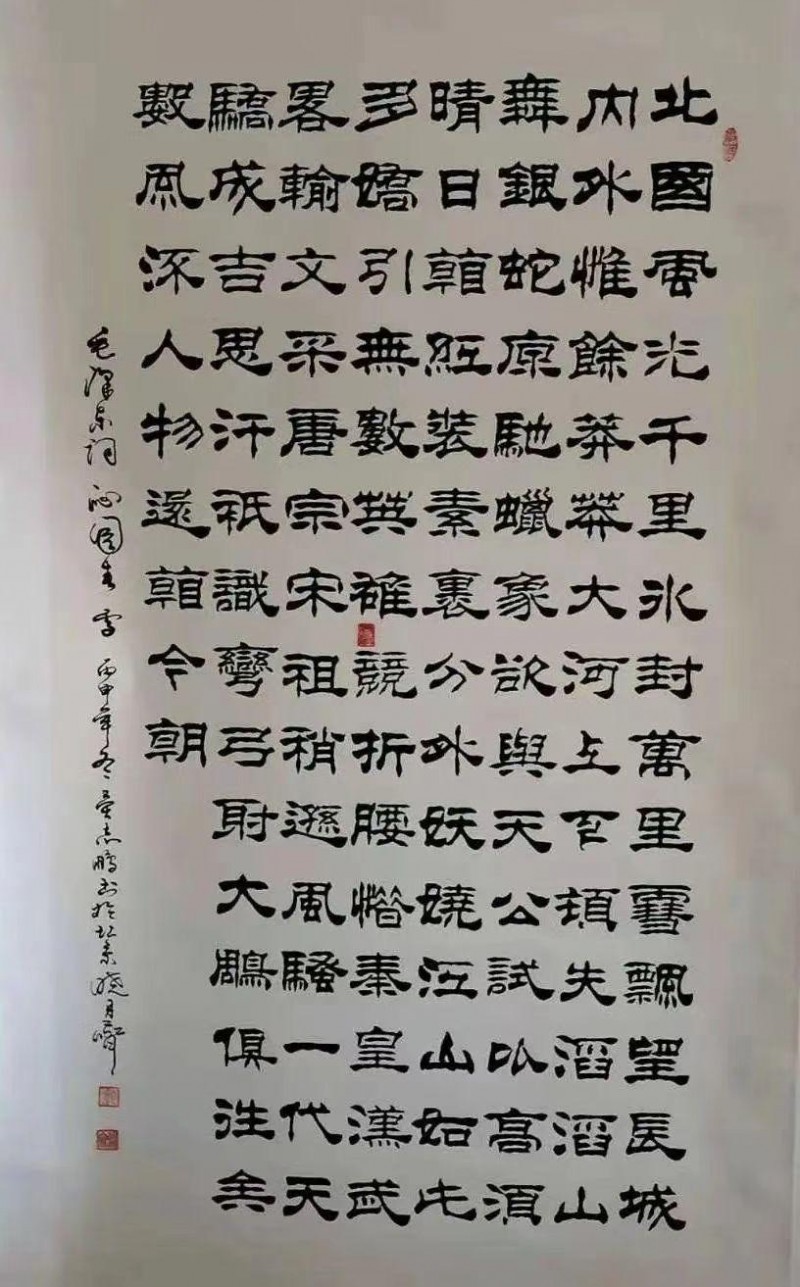 北國風光千里冰封萬里雪飄望長城
內外惟餘莽莽大河上下頓失滔滔山
舞銀蛇原馳蠟象欲與天公試比高須
晴日看紅裝素裹分外妖嬈江山如此
多嬌引無數英雄競折腰惜秦皇漢武
畧輸文采唐宗宋祖稍遜風騷一代天
驕成吉思汗祇識彎弓射大鵰俱往矣
數風流人物還看今朝
毛澤東詞沁園春雪 丙申年冬志鵬書於北京曉月